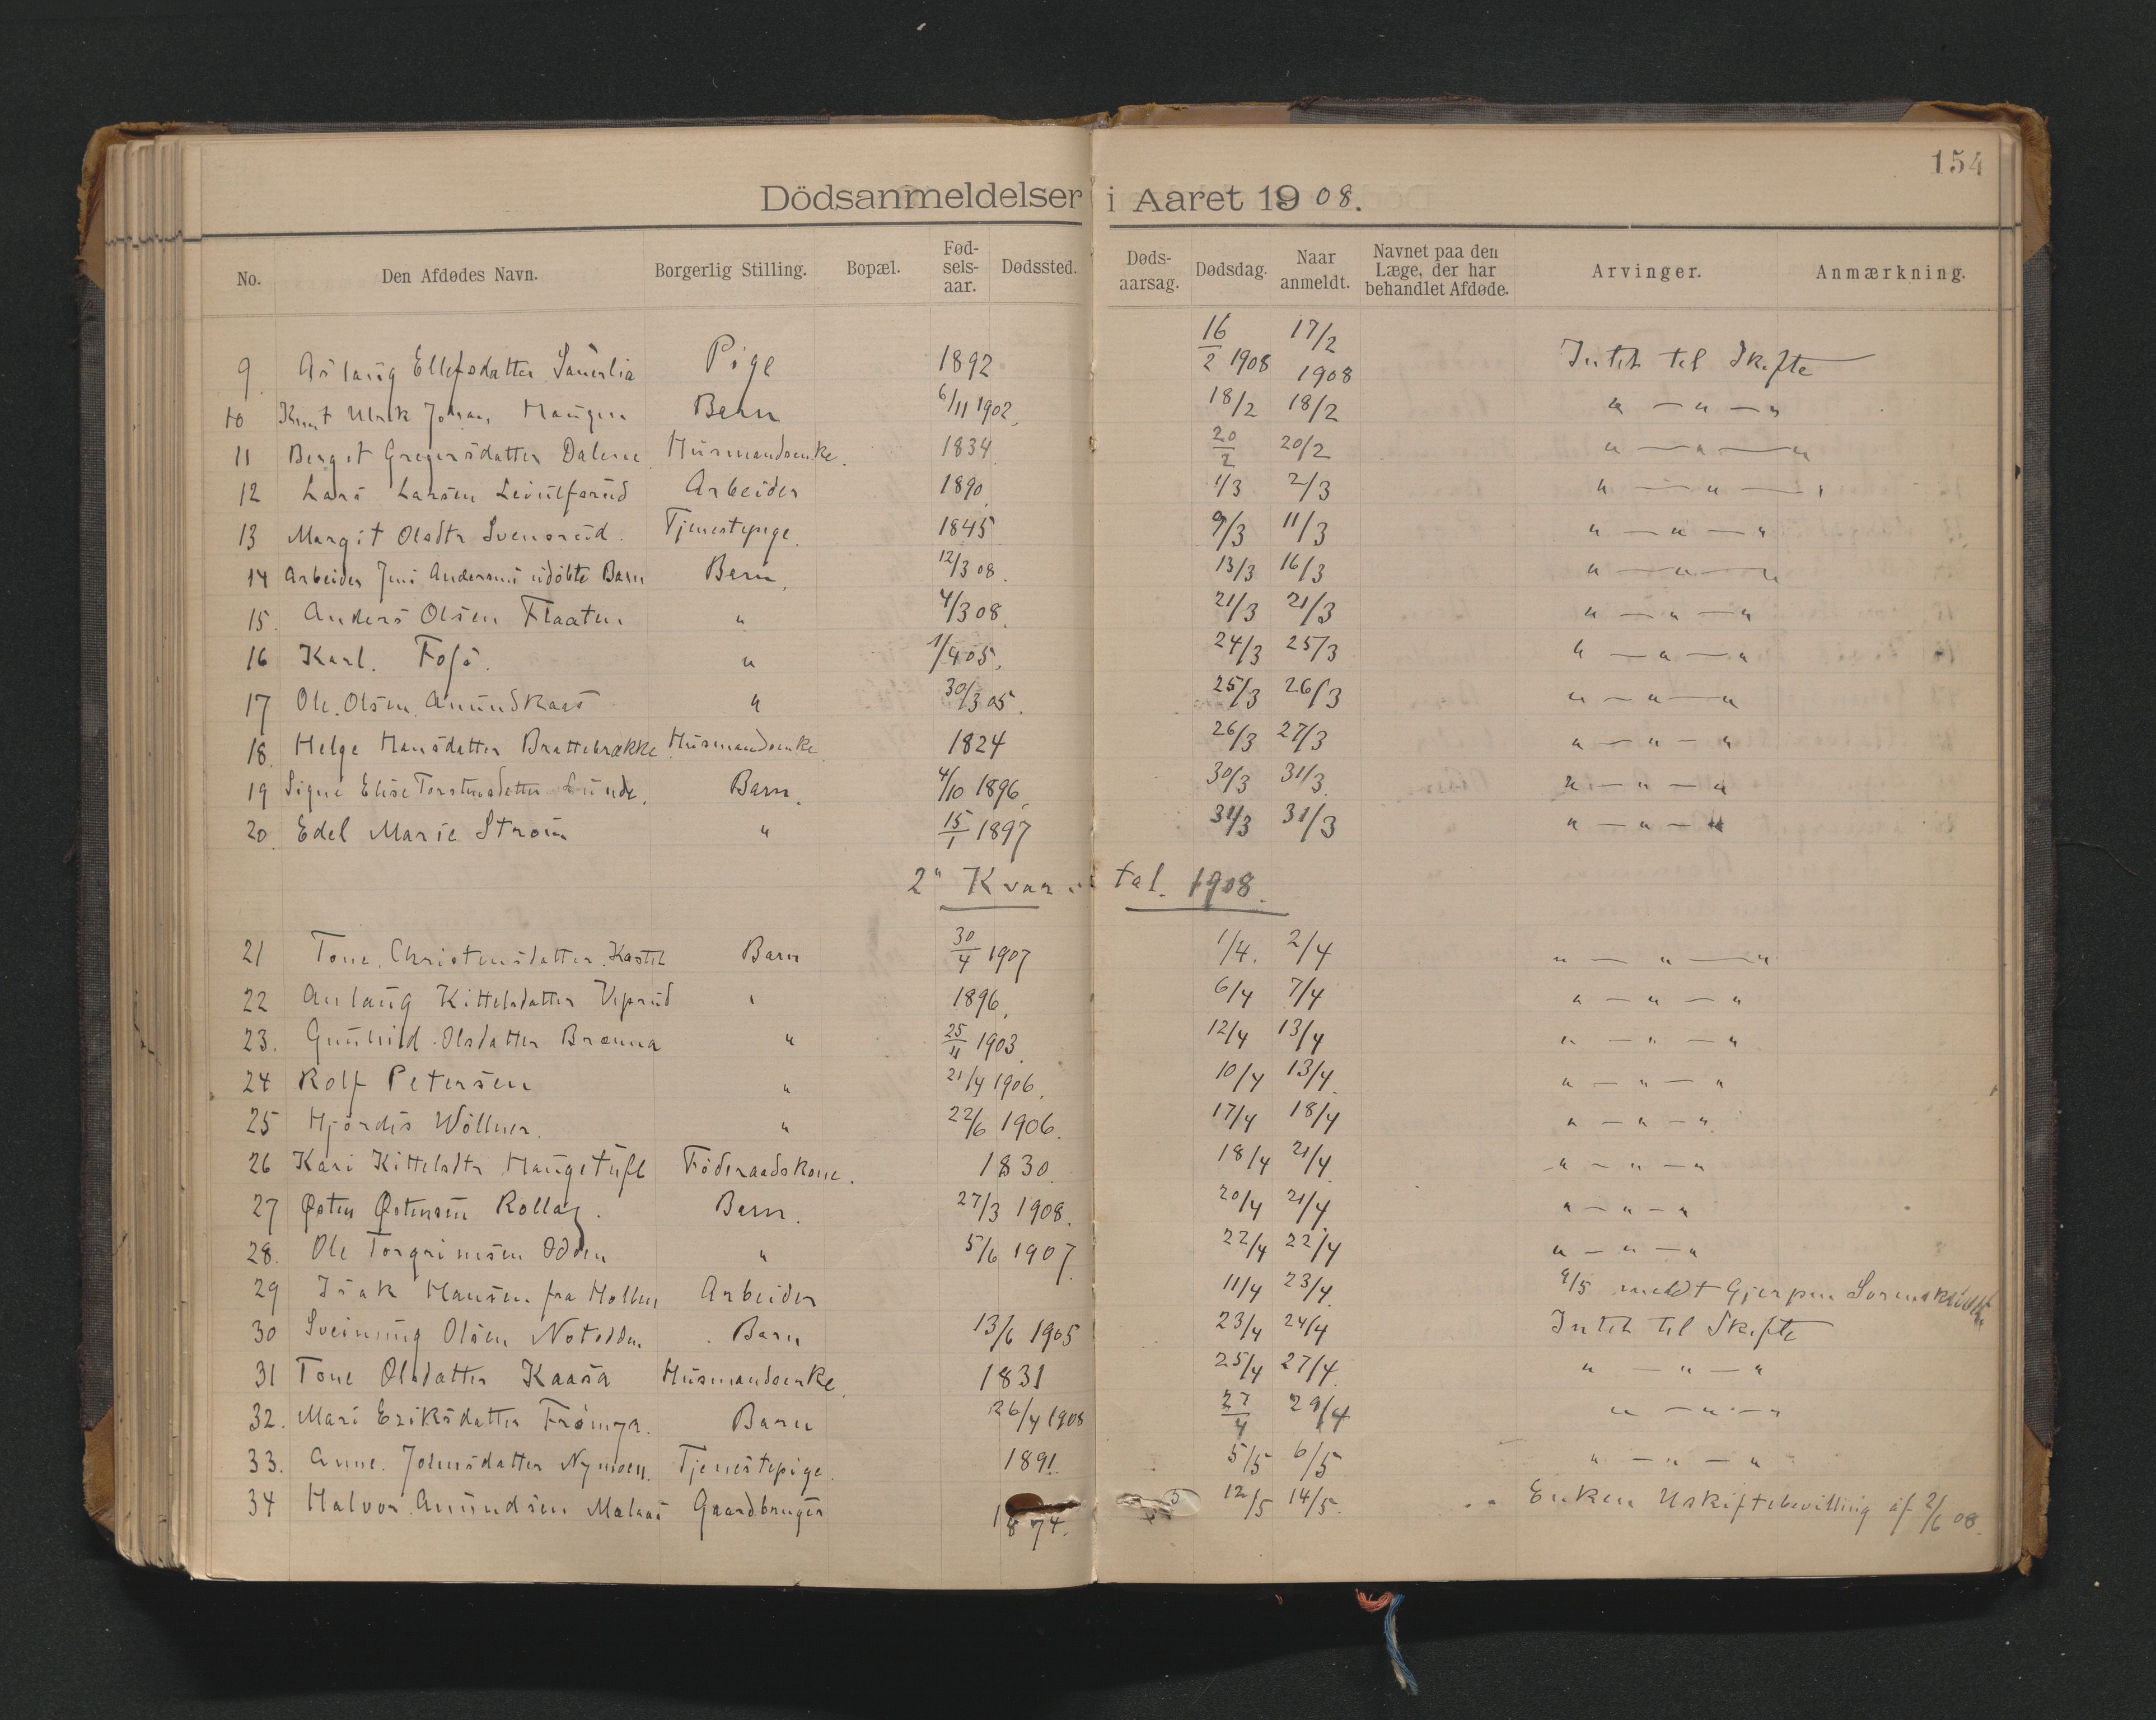 154
Dödsanmeldelser i Aaret 1908.
No. Den Afdødes Navn. Borgerlig Stilling. Bopæl. Fødselsaar. Dødssted. Dødsaarsag. Dødsdag. Naar anmeldt. Navnet paa den Læge, der har behandlet Afdøde. Arvinger. Anmærkning.
9 Aslaug Ellefsdatter Pige 1892 16/2 1908 17/2 1908 Intet til Skifte
10 Knut Ulrik Johan Haugen Barn 6/11 1902. 18/2 18/2 " — " — "
11 Bergit Gregersdatter Dalene Husmandsenke. 1834 20/2 20/2 " — " — "
12 Lars Larsen Arbeider 1890 1/3 2/3 " — " — "
13 Margit Olsdtr Svensrud. Tjenestepige. 1845 9/3 11/3 " — " — "
14 Arbeider Jens Andersens udøbte Barn Barn. 12/3 08. 13/3 16/3 " — " — "
15. Anders Olsen Flaaten " 4/3 08. 21/3 21/3 " — " — "
16 Karl. Foss. " 1/4 05. 24/3 25/3 " — " — "
17 Ole. Olsen. Amundskaas " 30/3 05. 25/3 26/3 " — " — "
18. Helge Hansdatter Brattebrække. Husmandsenke 1824 26/3 27/3 " — " — "
19 Signe Elise Torstensdatter Lunde. Barn. 4/10 1896. 30/3 31/3. " — " — "
20. Edel Marie Strøm " 15/1 1897 31/3 31/3 " — " — "
2" Kvartal. 1908.
21 Tone. Christensdatter. Barn 30/4 1907 1/4. 2/4 " — " — "
22 Kittelsdatter Viprud " 1896. 6/4 7/4 " — " — "
23. Gunhild Olsdatter Brenna " 25/11 1903. 12/4 13/4 " — " — "
24 Rolf Petersen " 21/4 1906. 10/4 13/4. " — " — "
25 Hjørdis Wöllner. " 22/6 1906. 17/4 18/4 " — " — "
26 Kari Kittelsdtr Haugetuft Föderaadskone. 1830. 18/4 21/4. " — " — "
27 Østen Østensen Rollag. Barn. 27/3 1908. 20/4 21/4. " — " — "
28. Ole Torgrimsen Odden " 5/6 1907. 22/4 22/4 " — " — "
29 Isak Hansen fra Hollen Arbeider 11/4 23/4. 4/5 meldt Gjerpen
30 Sveinung Olsen Notodden. Barn 13/6 1905 23/4 24/4 Intet til Skifte
31 Tone Olsdatter Kaasa Husmandsenke. 1831 25/4 27/4. " — " — "
32. Mari Eriksdatter Barn 26/4 1908 27/4 29/4 " — " — "
33. Anne. Johnsdatter Nymoen. Tjenestepige. 1891. 5/5 6/5 " — " — "
34 Halvor Amundsen Malaas Gaardbruger 1874. 12/5 14/5. Enken Uskiftebevilling af 2/6 08.